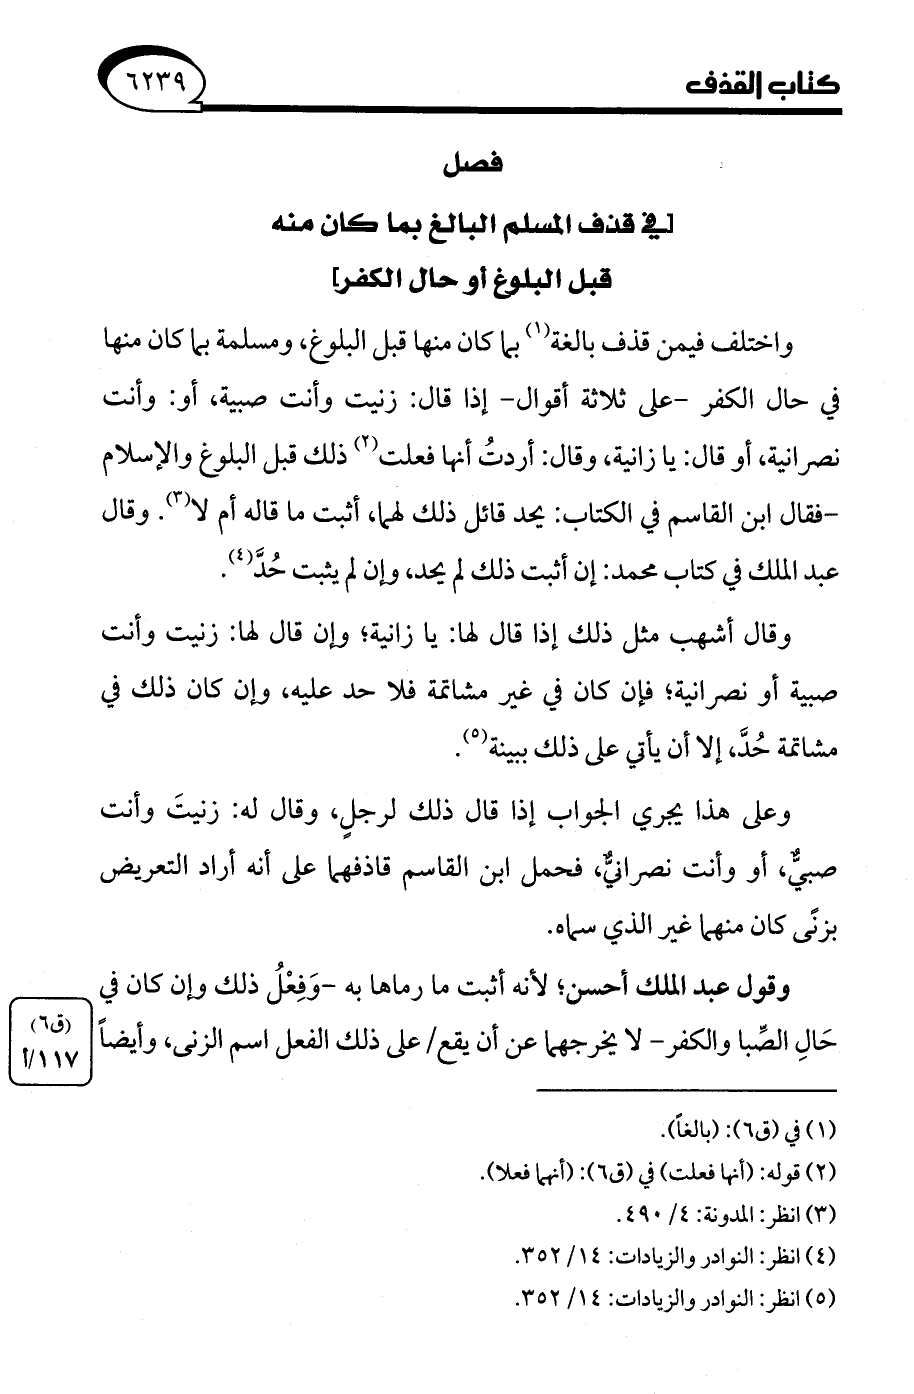 كتاب القذف ٦٢٣٩
فصل
[في قذف المسلم البالغ بما كان منه
قبل البلوغ أو حال الكفر]
واختلف فيمن قذف بالغة(١) بما كان منها قبل البلوغ، ومسلمة بما كان منها
في حال الكفر -على ثلاثة أقوال- إذا قال: زنيت وأنت صبية، أو: وأنت
نصرانية، أو قال: يا زانية، وقال: أردتُ أنها فعلت(٢) ذلك قبل البلوغ والإسلام
-فقال ابن القاسم في الكتاب: يحد قائل ذلك لهما، أثبت ما قاله أم لا(٣). وقال
عبد الملك في كتاب محمد: إن أثبت ذلك لم يحد، وإن لم يثبت حُدَّ(٤).
وقال أشهب مثل ذلك إذا قال لها: يا زانية؛ وإن قال لها: زنيت وأنت
صبية أو نصرانية؛ فإن كان في غير مشاتمة فلا حد عليه، وإن كان ذلك في
مشاتمة حُدَّ، إلا أن يأتي على ذلك ببينة(٥).
وعلى هذا يجري الجواب إذا قال ذلك لرجلٍ، وقال له: زنيتَ وأنت
صبيٌّ، أو وأنت نصرانيٌّ، فحمل ابن القاسم قاذفهما على أنه أراد التعريض
بزنًى كان منهما غير الذي سماه.
وقول عبد الملك أحسن؛ لأنه أثبت ما رماها به -وَفِعْلُ ذلك وإن كان في
حَالِ الصِّبا والكفر- لا يخرجهما عن أن يقع/ على ذلك الفعل اسم الزنى، وأيضاً
(ق٦)
١١٧/أ
(١) في (ق٦): (بالغاً).
(٢) قوله: (أنها فعلت) في (ق٦): (أنهما فعلا).
(٣) انظر: المدونة: ٤/ ٤٩٠.
(٤) انظر: النوادر والزيادات: ١٤/ ٣٥٢.
(٥) انظر: النوادر والزيادات: ١٤/ ٣٥٢.